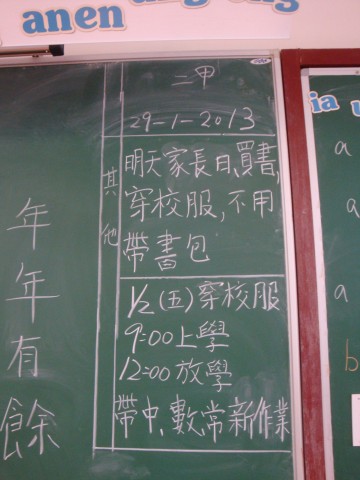 anen
二甲
29-1-2013
其他
明天家長日,買書,
穿校服,不用
帶書包
1/2(五)穿校服
9:00上學
12:00放學
帶中、數、常新作業
年年有餘
ia
a
a
a
b